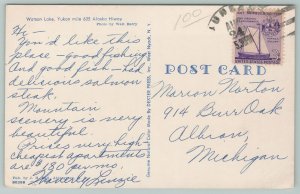 Watson Lake, Yukon mile 635 Alaska Hiway
Photo by
100
Hi-
You'd like this
place - good fishing
and good fish - had
delicious salmon
steak.
Mountain
scenery is very
beautiful.
Prices very high -
cheapest apartments
are $130 per mo.
Beverly
POST CARD
Marion Norton
914 Burr Oak
Albion,
Michigan